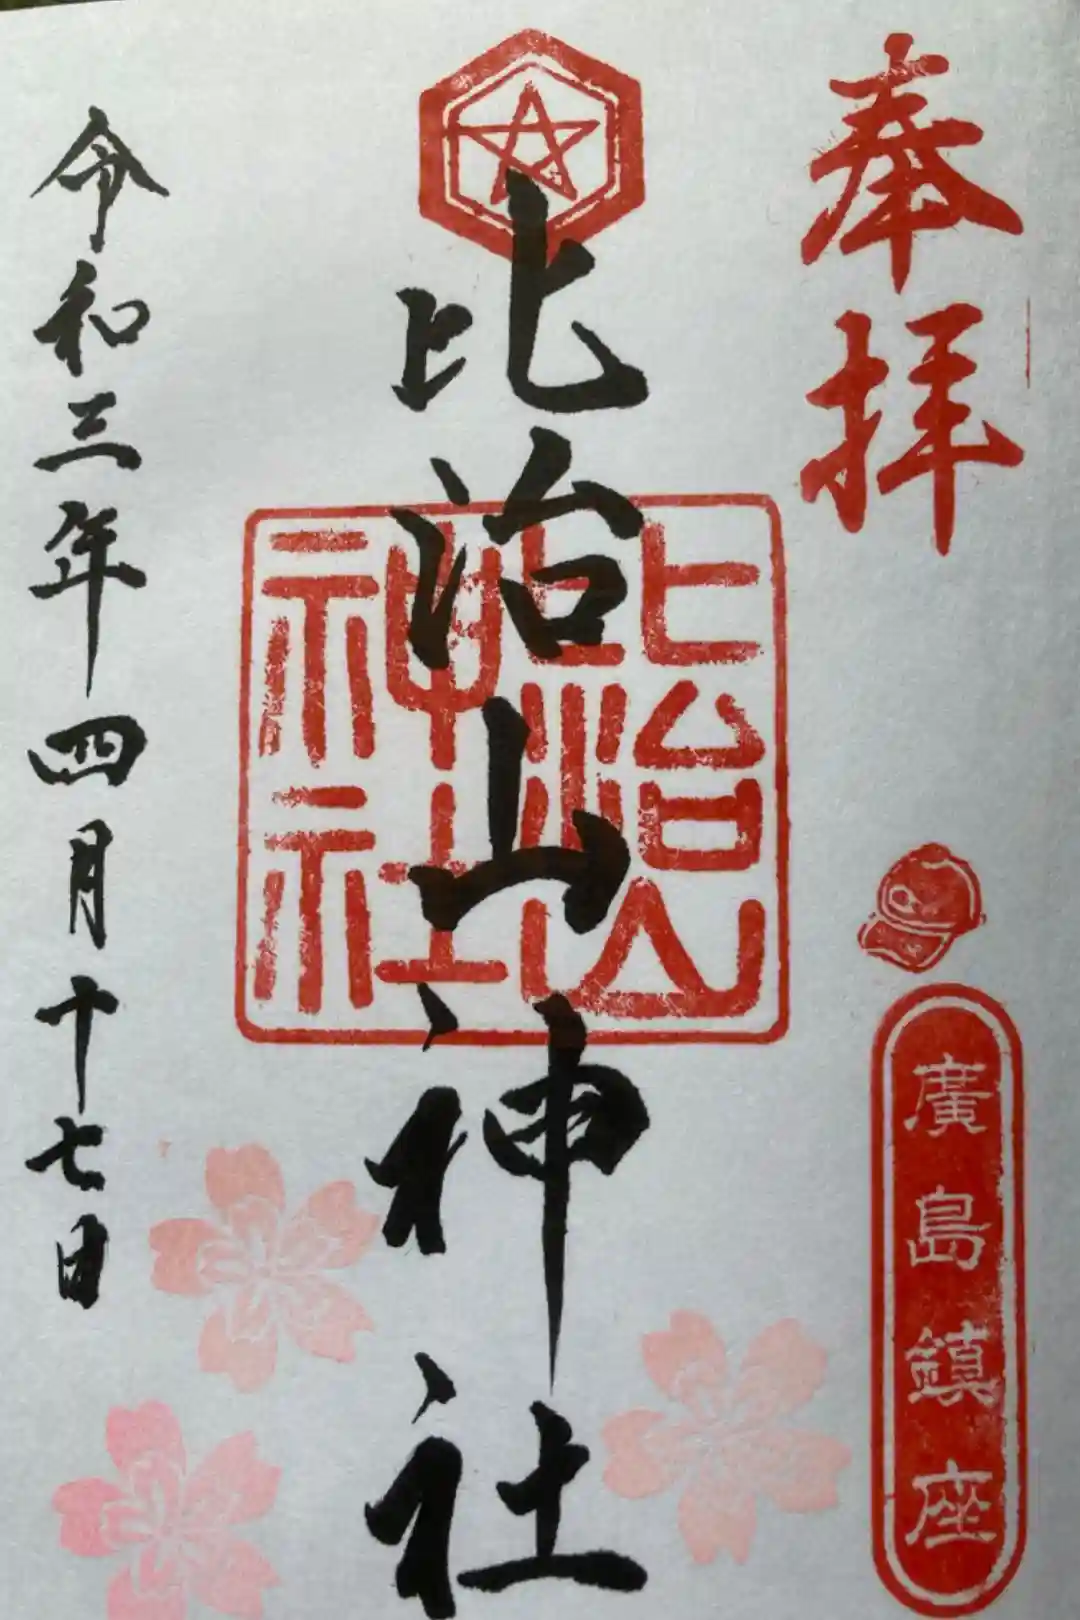 奉拝
廣島鎮座
比治山神社
比治山
神社
令和三年四月十七日